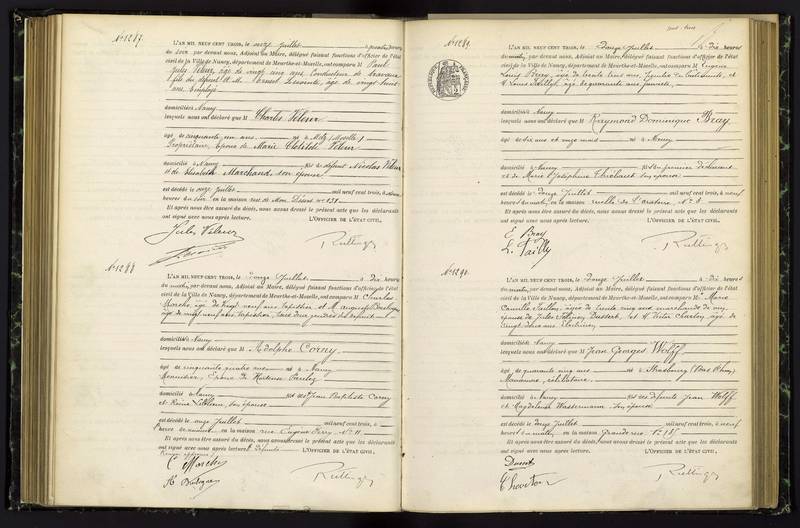 N° 1287.
L'AN MIL NEUF CENT TROIS, le onze Juillet à
du soir, par devant nous, Adjoint au Maire, délégué faisant fonctions d'officier de l'état
civil de la Ville de Nancy, département de Meurthe-et-Moselle, ont comparu M Paul
Jules Veleur, âgé de vingt cinq ans, Conducteur de travaux
fils du défunt et M. âgé de vingt huit
ans, Employé
domiciliés à Nancy
lesquels nous ont déclaré que M Charles Veleur
âgé de cinquante un ans né à Metz (Moselle)
Propriétaire, époux de Marie Clotilde Veleur
domicilié à Nancy fils de défunt Nicolas Veleur
et de Elisabeth Marchand, son épouse
est décédé le onze Juillet mil neuf cent trois, à
heures du soir, en la maison rue de Mon Désert n° 131
Et après nous être assuré du décès, nous avons dressé le présent acte que les déclarants
ont signé avec nous après lecture. L'OFFICIER DE L'ÉTAT CIVIL,
Jules Veleur
N° 1288
L'AN MIL NEUF CENT TROIS, le douze Juillet à dix heures
du matin, par devant nous, Adjoint au Maire, délégué faisant fonctions d'officier de l'état
civil de la Ville de Nancy, département de Meurthe-et-Moselle, ont comparu M Charles
âgé de vingt neuf ans, tapissier et M. Auguste
âgé de vingt neuf ans, tapissier, tous deux gendres du défunt
domiciliés à Nancy
lesquels nous ont déclaré que M Adolphe Corny
âgé de cinquante quatre ans né à Nancy
Menuisier, Epoux de Hortense
domicilié à Nancy fils de Jean Baptiste Corny
et son épouse
est décédé le onze Juillet mil neuf cent trois, à
heures de en la maison rue Eugène Ferry N° 11
Et après nous être assuré du décès, nous avons dressé le présent acte que les déclarants
ont signé avec nous après lecture. L'OFFICIER DE L'ÉTAT CIVIL,
N° 1289.
L'AN MIL NEUF CENT TROIS, le Douze Juillet à Dix heures
du matin, par devant nous, Adjoint au Maire, délégué faisant fonctions d'officier de l'état
civil de la Ville de Nancy, département de Meurthe-et-Moselle, ont comparu M Eugène
Louis Bray, âgé de trente trois ans, et
M Louis âgé de quarante ans
domiciliés à Nancy
lesquels nous ont déclaré que M Raymond Dominique Bray
âgé de dix ans et onze mois né à Nancy
domicilié à Nancy fils du premier déclarant
et de Marie Joséphine Thiébaut son épouse
est décédé le douze Juillet mil neuf cent trois, à neuf
heures du matin, en la maison ruelle de l'oratoire, N° 8
Et après nous être assuré du décès, nous avons dressé le présent acte que les déclarants
ont signé avec nous après lecture. L'OFFICIER DE L'ÉTAT CIVIL,
E. Bray
N° 1290.
L'AN MIL NEUF CENT TROIS, le douze Juillet à dix heures
du matin, par devant nous, Adjoint au Maire, délégué faisant fonctions d'officier de l'état
civil de la Ville de Nancy, département de Meurthe-et-Moselle, ont comparu M Marie
Camille âgée de trente cinq ans, marchande de
épouse de Jules et M Victor âgé de
vingt deux ans
domiciliés à Nancy
lesquels nous ont déclaré que M Jean Georges Wolff
âgé de quarante cinq ans né à Strasbourg (Bas Rhin)
Manœuvre, célibataire
domicilié à Nancy fils de défunts Jean Wolff
et Magdelaine Wassermann son épouse
est décédé le douze Juillet mil neuf cent trois, à
heures du matin, en la maison grande rue N°
Et après nous être assuré du décès, nous avons dressé le présent acte que les déclarants
ont signé avec nous après lecture. L'OFFICIER DE L'ÉTAT CIVIL,